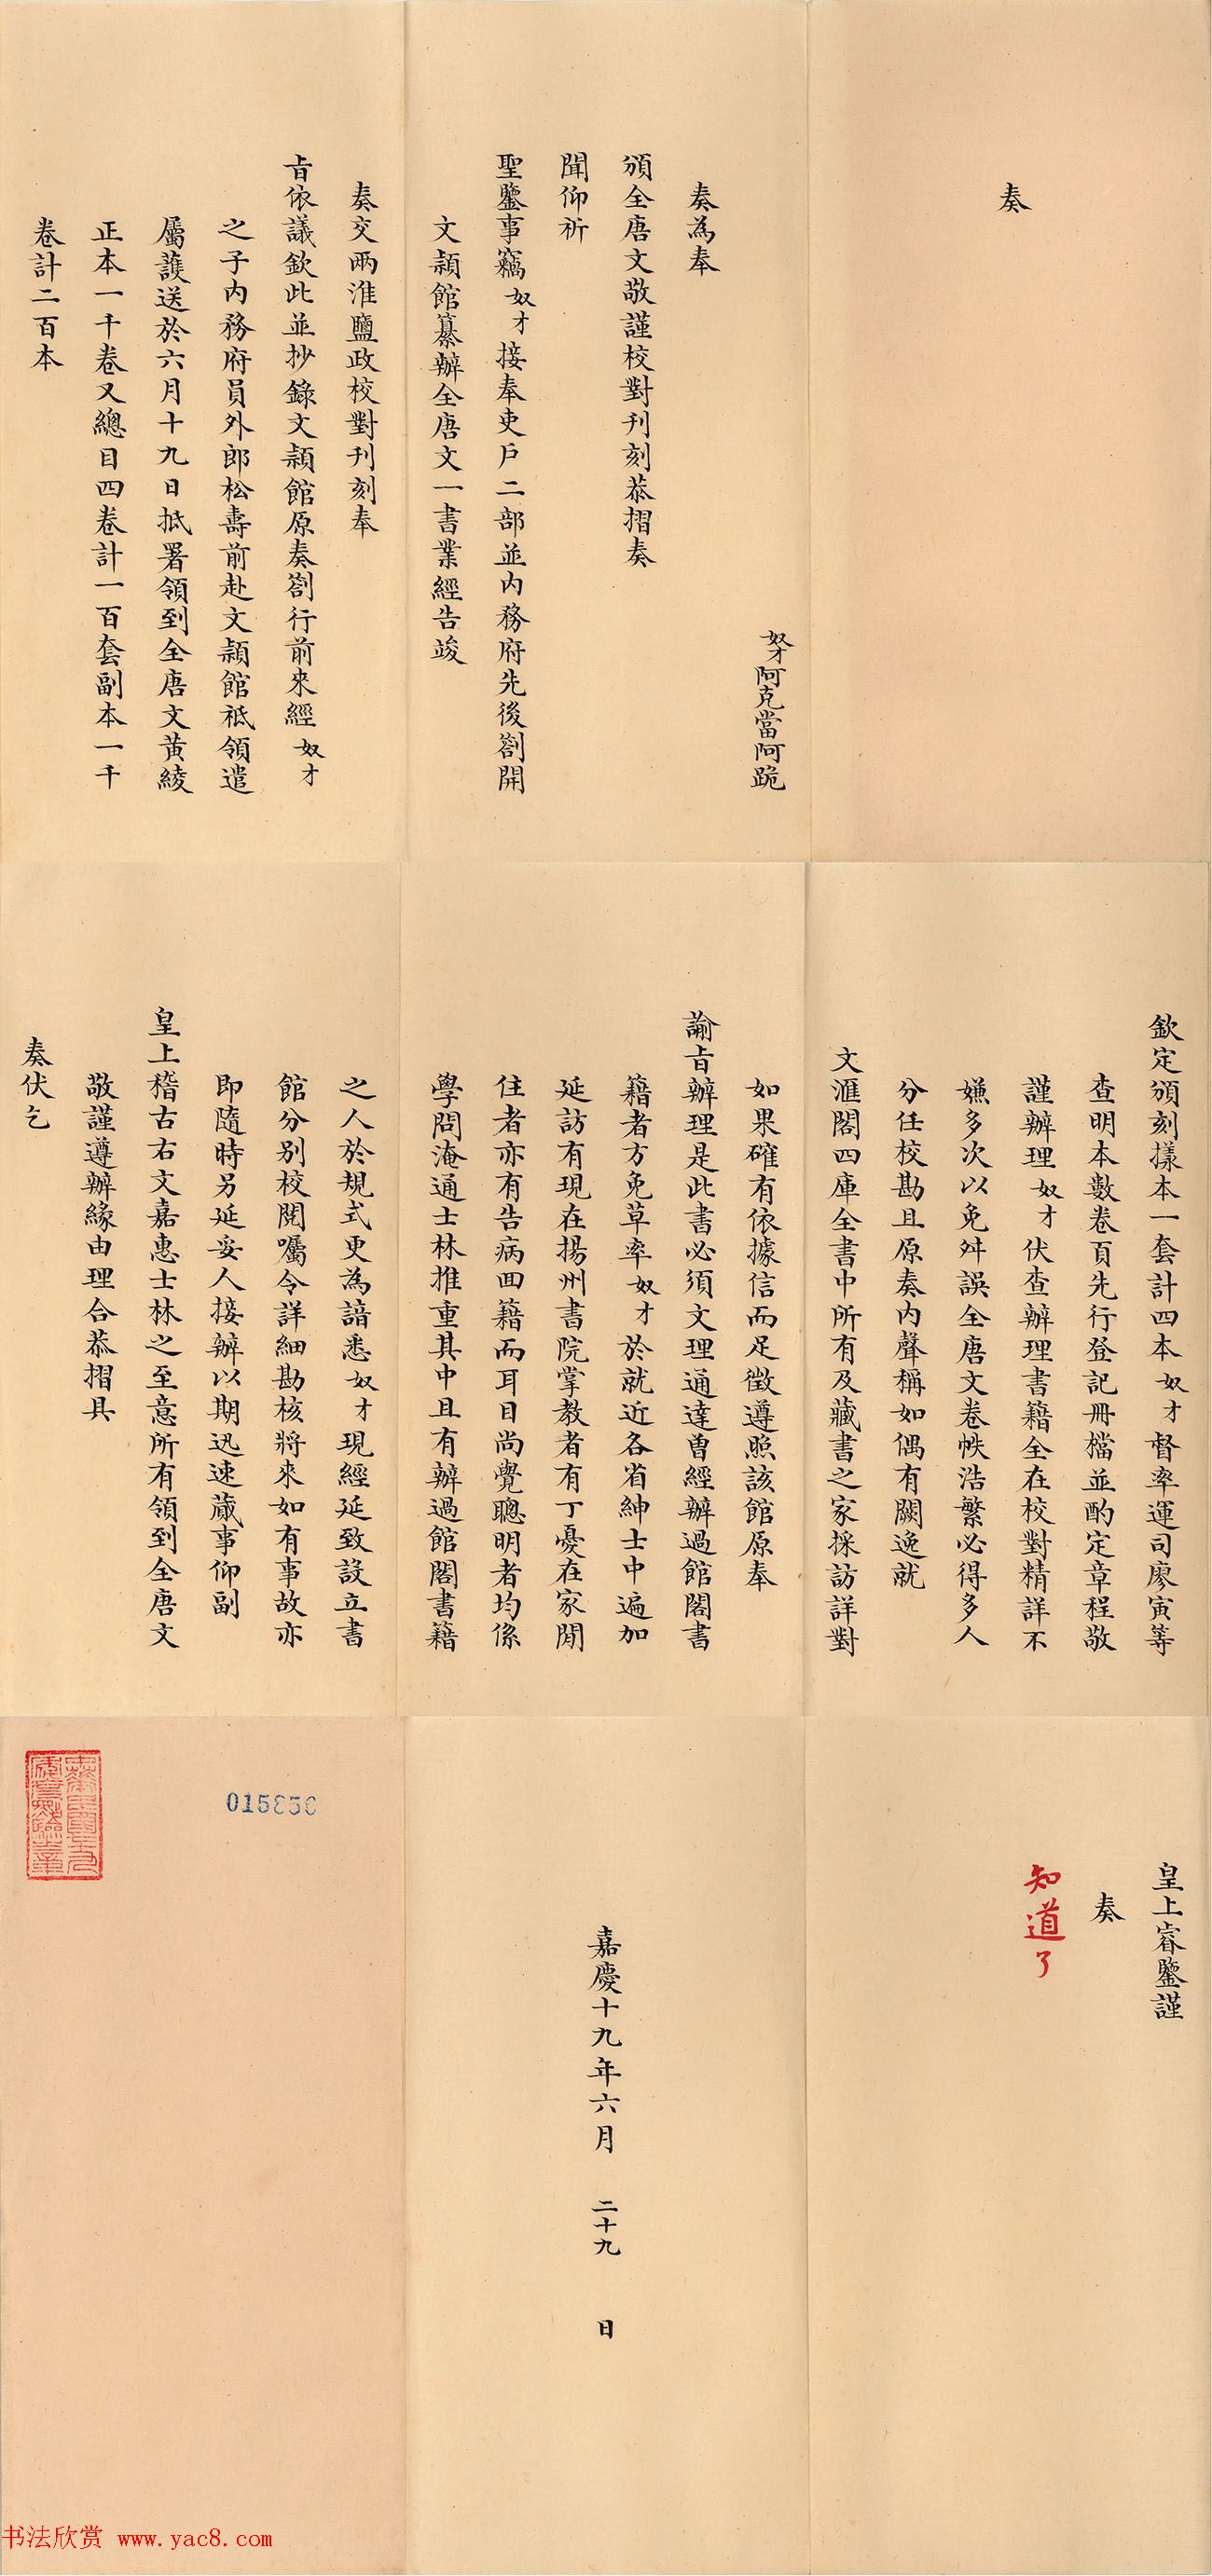 奏
奴才阿克當阿跪
奏為奉
頒全唐文敬謹校對刊刻恭摺奏
聞仰祈
聖鑒事竊奴才接奉吏戶二部並內務府先後劄開
文穎館纂辦全唐文一書業經告竣
奏交兩淮鹽政校對刊刻奉
旨依議欽此並抄錄文穎館原奏劄行前來經奴才
之子內務府員外郎松壽前赴文穎館祗領遣
屬護送於六月十九日抵署領到全唐文黃綾
正本一千卷又總目四卷計一百套副本一千
卷計二百本
欽定頒刻樣本一套計四本奴才督率運司廖寅等
查明本數卷頁先行登記冊檔並酌定章程敬
謹辦理奴才伏查辦理書籍全在校對精詳不
嫌多次以免舛誤全唐文卷帙浩繁必得多人
分任校勘且原奏內聲稱如偶有闕逸就
文滙閣四庫全書中所有及藏書之家採訪詳對
如果確有依據信而足徵遵照該館原奉
諭旨辦理是此書必須文理通達曾經辦過館閣書
籍者方免草率奴才於就近各省紳士中遍加
延訪有現在揚州書院掌教者有丁憂在家閒
住者亦有告病回籍而耳目尚覺聰明者均係
學問淹通士林推重其中且有辦過館閣書籍
之人於規式更為諳悉奴才現經延致設立書
館分別校閱囑令詳細勘核將來如有事故亦
即隨時另延妥人接辦以期迅速蕆事仰副
皇上稽古右文嘉惠士林之至意所有領到全唐文
敬謹遵辦緣由理合恭摺具
奏伏乞
皇上睿鑒謹
奏
知道了
嘉慶十九年六月 二十九 日
书法欣赏 www.yac8.com